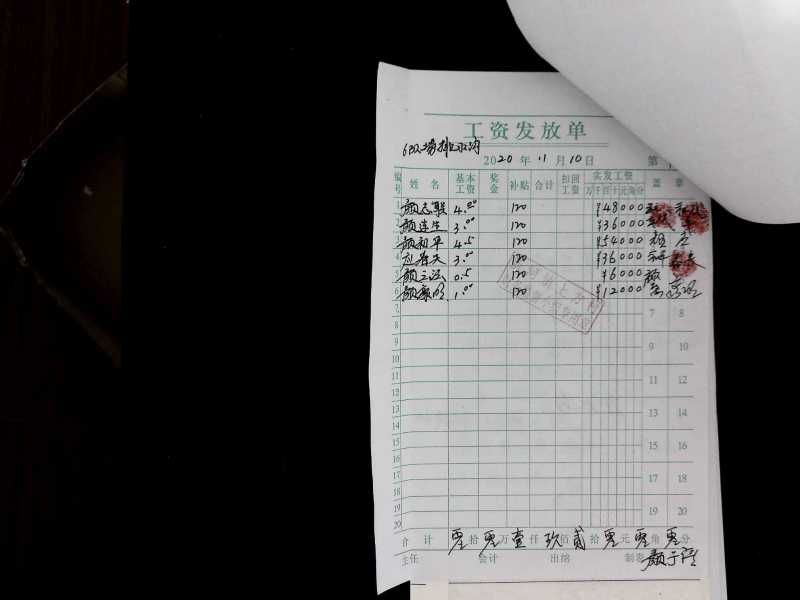 工资发放单
2020年11月10日 第
编号 姓名 基本工资 奖金 补贴 合计 扣回工资 实发工资 盖章
万千百十元角分
1 颜志联 4.00 120 ¥48000
2 颜连生 3.00 120 ¥36000
3 颜和平 4.5 120 ¥54000
4 应春夫 3.00 120 ¥36000
5 120 0.5 ¥6000
6 颜康明 1.00 120 ¥12000
7 7 8
8
9 9 10
10
11 11 12
12
13 13 14
14
15 15 16
16
17 17 18
18
19 19 20
20
合计 零拾零万壹仟玖佰贰拾零元零角零分
主任 会计 出纳 制表